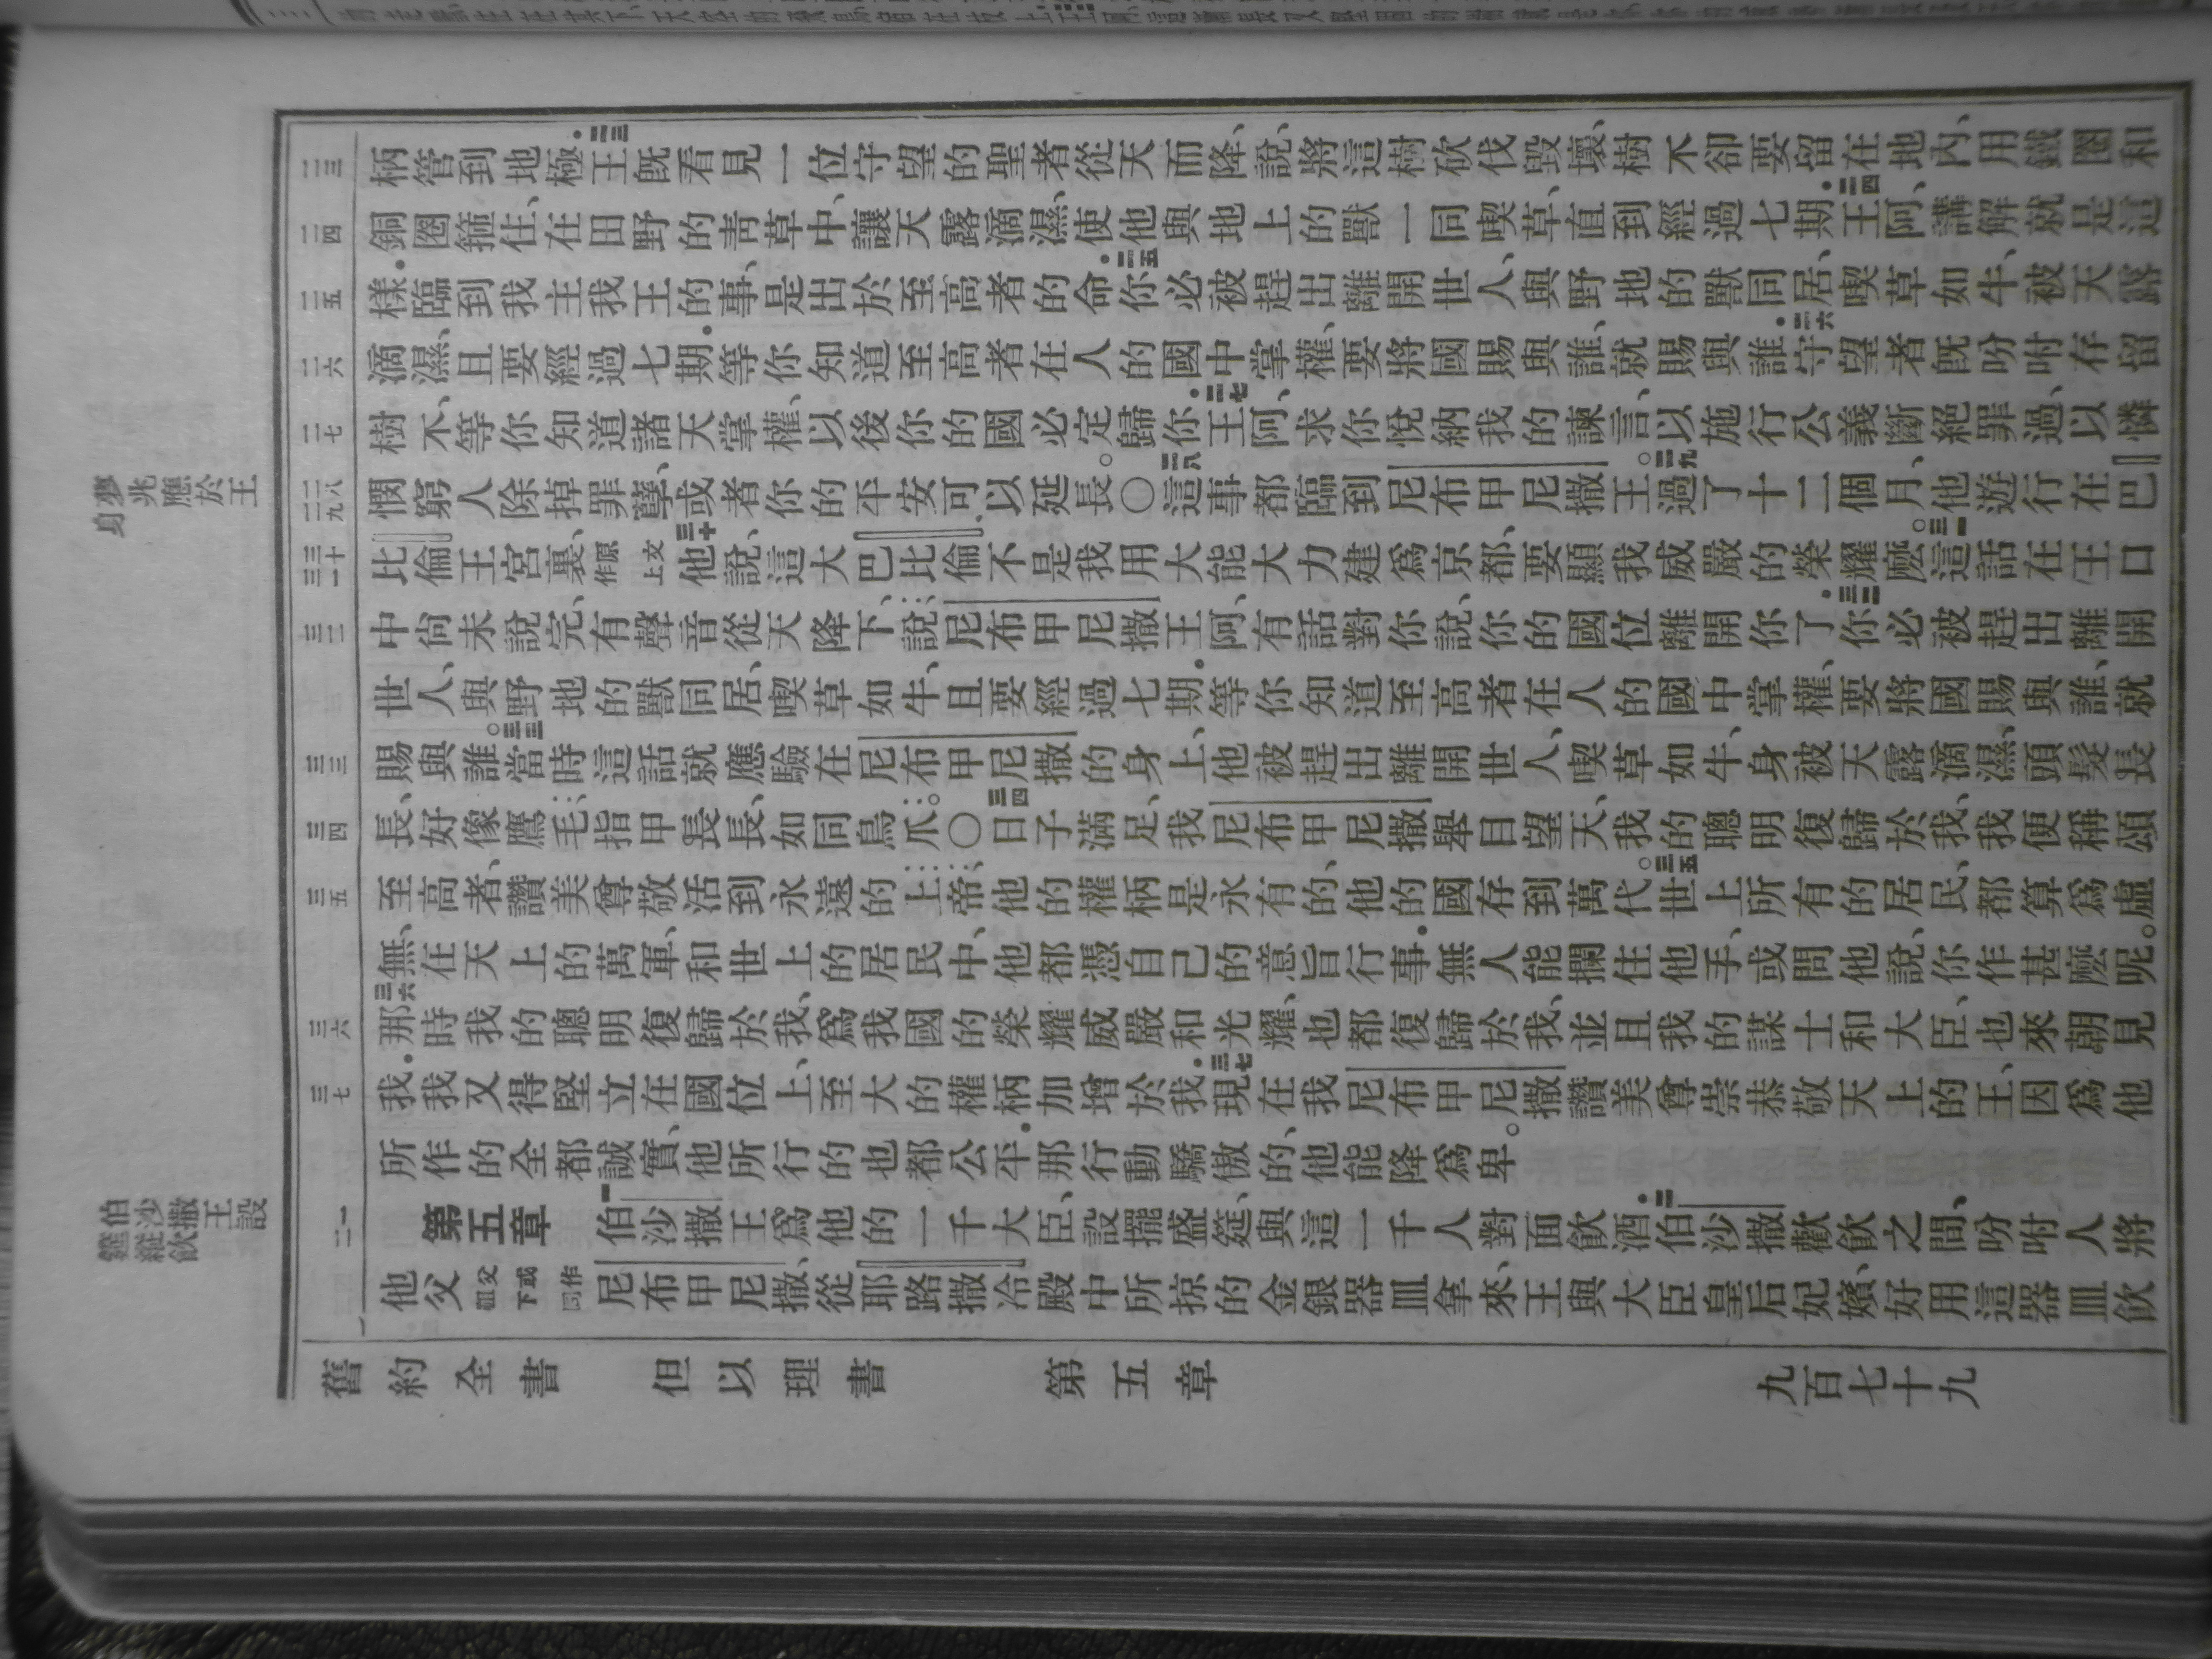 夢兆應於王
身
伯沙撒王設
筵縱飲
柄管到地極．二三王既看見一位守望的聖者從天而降、說、將這樹砍伐毀壞、樹不卻要留在地內、用鐵圈和
銅圈箍住、在田野的青草中、讓天露滴濕、使他與地上的獸一同喫草、直到經過七期．二四王阿、講解就是這
樣．臨到我主我王的事、是出於至高者的命．二五你必被趕出離開世人、與野地的獸同居、喫草如牛、被天露
滴濕、且要經過七期．等你知道至高者在人的國中掌權、要將國賜與誰、就賜與誰．二六守望者既吩咐存留
樹不、等你知道諸天掌權、以後你的國必定歸你．二七王阿、求你悅納我的諫言、以施行公義斷絕罪過、以憐
憫窮人除掉罪孽、或者你的平安可以延長。〇二八這事都臨到尼布甲尼撒王。二九過了十二個月、他遊行在巴
比倫王宮裏、原文作上三十他說、這大巴比倫不是我用大能大力建為京都、要顯我威嚴的榮耀麼。三一這話在王口
中尚未說完、有聲音從天降下、說、尼布甲尼撒王阿、有話對你說、你的國位離開你了．三二你必被趕出離開
世人、與野地的獸同居、喫草如牛、且要經過七期．等你知道至高者在人的國中掌權、要將國賜與誰、就
賜與誰。三三當時這話就應驗在尼布甲尼撒的身上、他被趕出離開世人、喫草如牛、身被天露滴濕、頭髮長
長、好像鷹毛、指甲長長、如同鳥爪。〇三四日子滿足、我尼布甲尼撒舉目望天、我的聰明復歸於我、我便稱頌
至高者、讚美尊敬活到永遠的上帝、他的權柄是永有的、他的國存到萬代。三五世上所有的居民、都算為虛
無、在天上的萬軍、和世上的居民中、他都憑自己的意旨行事．無人能攔住他手、或問他說、你作甚麼呢。
三六那時我的聰明復歸於我、為我國的榮耀威嚴和光耀、也都復歸於我、並且我的謀士和大臣、也來朝見
我．我又得堅立在國位上、至大的權柄加增於我．三七現在我尼布甲尼撒讚美尊崇恭敬天上的王、因為他
所作的全都誠實、他所行的也都公平．那行動驕傲的、他能降為卑。
第五章 一伯沙撒王為他的一千大臣、設擺盛筵、與這一千人對面飲酒．二伯沙撒歡飲之間、吩咐人將
他父祖父或下同作尼布甲尼撒、從耶路撒冷殿中所掠的金銀器皿拿來、王與大臣皇后妃嬪、好用這器皿飲
舊約全書 但以理書 第五章 九百七十九